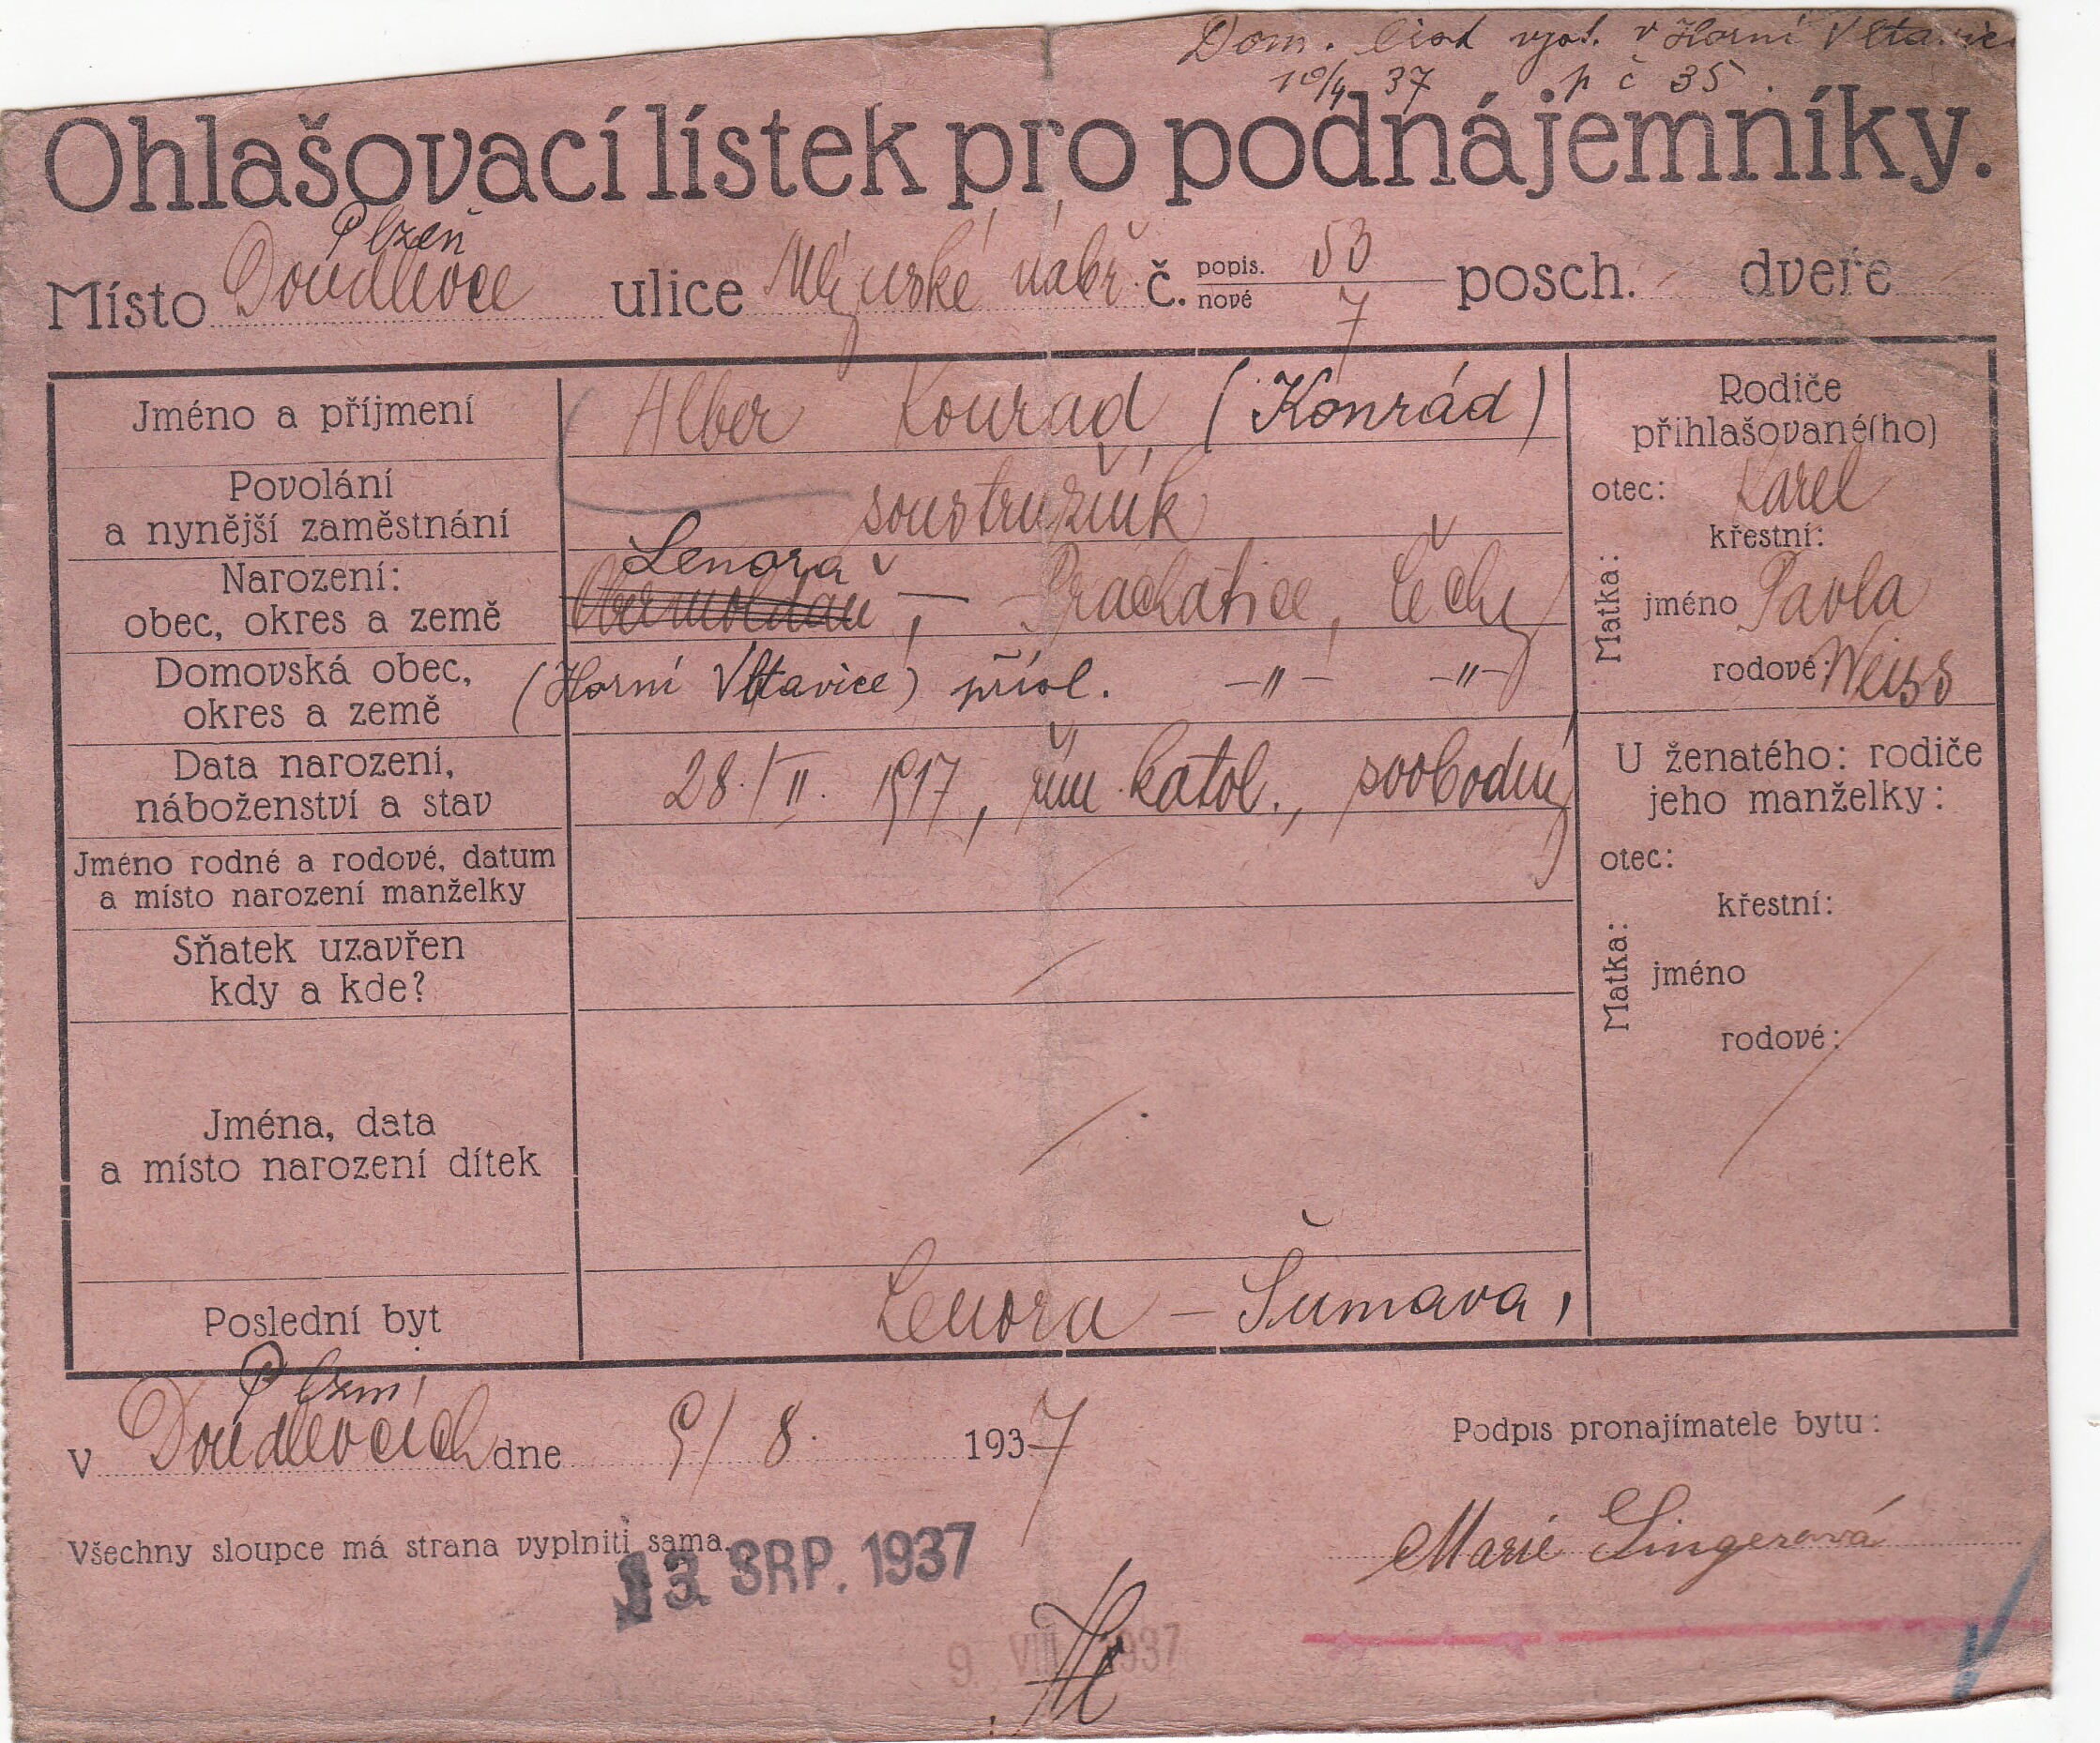 Dom. list vyst. v Horní Vltavici
10/4 37 p č 35.
Ohlašovací lístek pro podnájemníky.
Plzeň
Místo Doudlevce ulice Mlýnské nábř. č. popis. 53 nové 7 posch. dveře
Jméno a příjmení Alber Konrad, (Konrád)
Povolání
a nynější zaměstnání soustružník
Lenora
Narození:
obec, okres a země Obermoldau, – Prachatice, Čechy
Domovská obec,
okres a země (Horní Vltavice) přísl. –„– –„–
Data narození,
náboženství a stav 28./II. 1917, řím. katol., svobodný
Jméno rodné a rodové, datum
a místo narození manželky /
Sňatek uzavřen
kdy a kde? /
Jména, data
a místo narození dítek /
Poslední byt Lenora – Šumava,
Rodiče
přihlašované(ho)
otec: Karel
Matka:
křestní:
jméno Pavla
rodové: Weiss
U ženatého: rodiče
jeho manželky:
otec:
Matka:
křestní:
jméno
rodové:
Plzni
v Doudlevcích dne 9/8. 1937
Podpis pronajímatele bytu:
Marie Singerová
Všechny sloupce má strana vyplniti sama.
13. SRP. 1937
9. VIII. 1937